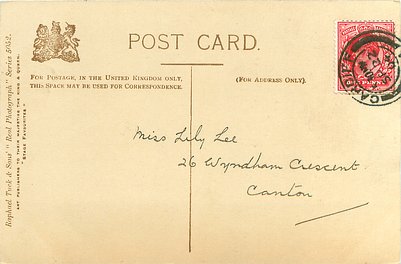 POST CARD.
FOR POSTAGE, IN THE UNITED KINGDOM ONLY,
THIS SPACE MAY BE USED FOR CORRESPONDENCE.
(FOR ADDRESS ONLY).
Miss Lily Lee
26 Wyndham Crescent
Canton
Raphael Tuck & Sons' "Real Photograph" Series 5052.
ART PUBLISHERS TO THEIR MAJESTIES THE KING & QUEEN.
"STAGE FAVOURITES"
CARDIFF